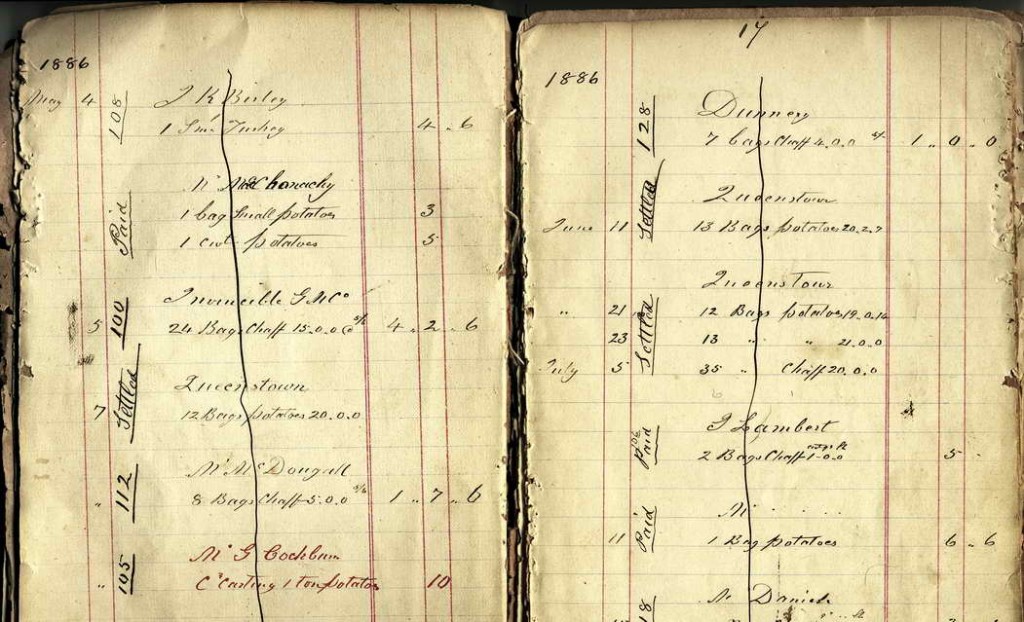 1886
May 4 108 J K Birley
1 Sml Turkey 4 .. 6
Paid Mr McChonachy
1 bag Small potatoes 3
1 cwt potatoes 5
5 100 Invincible G M Co
24 Bags Chaff 15.0.0 @ 5/6 4 .. 2 .. 6
7 Settled Queenstown
12 Bags potatoes 20.0.0
" 112 Mr McDougall
8 Bags Chaff 5.0.0 5/6 1 .. 7 .. 6
" 105 Mr G Cockburn
Carting 1 ton potatoes 10
17
1886
128 Dunnery
7 bags Chaff 4.0.0 1 .. 0 .. 0
Settled Queenstown
June 11 13 Bags potatoes 20.2.7
Settled Queenstown
" 21 12 Bags potatoes 19.0.14
23 13 " " 21.0.0
July 5 35 " Chaff 20.0.0
106 Paid J Lambert
2 Bags Chaff 1-0.0 5 -
Paid Mr
11 1 Bag potatoes 6 .. 6
Mr Daniel